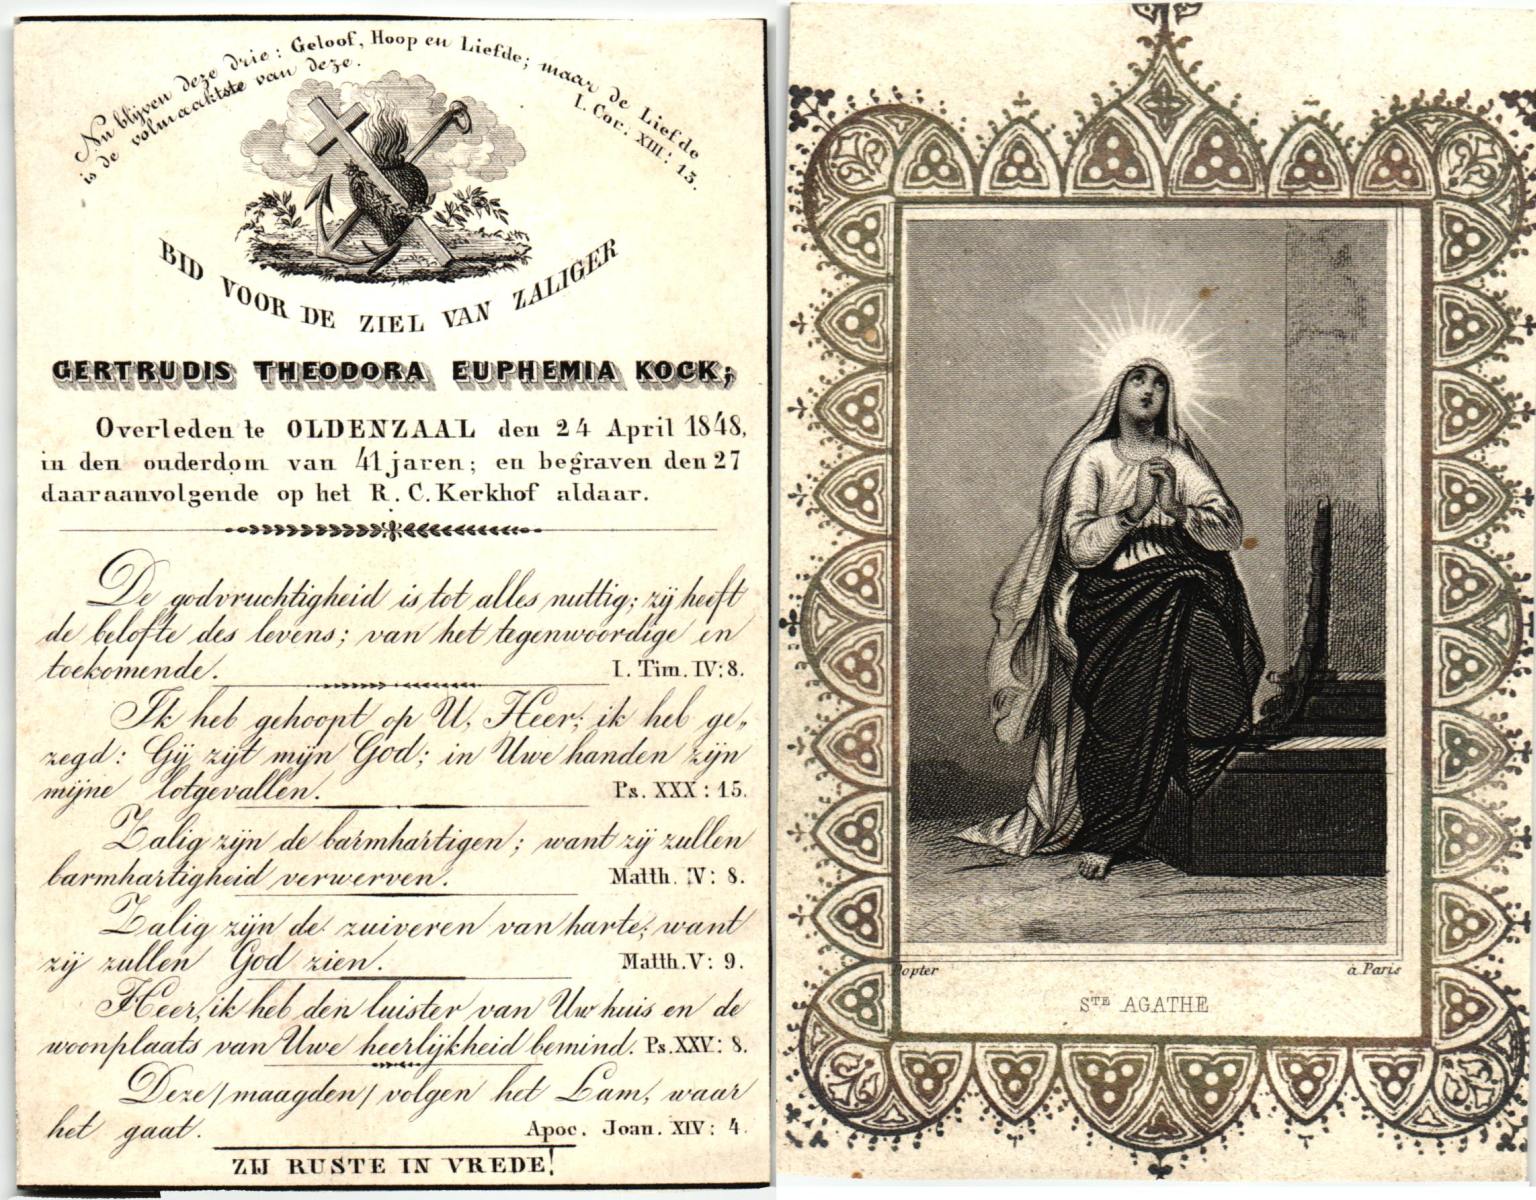 Nu blijven deze drie: Geloof, Hoop en Liefde; maar de Liefde
is de volmaaktste van deze.
I. Cor. XIII: 13.
BID VOOR DE ZIEL VAN ZALIGER
GERTRUDIS THEODORA EUPHEMIA KOCK;
Overleden te OLDENZAAL den 24 April 1848,
in den ouderdom van 41 jaren; en begraven den 27
daaraanvolgende op het R. C. Kerkhof aldaar.
De godvruchtigheid is tot alles nuttig; zij heeft
de belofte des levens; van het tegenwoordige en
toekomende. I. Tim. IV: 8.
Ik heb gehoopt op U, Heer; ik heb ge„
zegd: Gij zijt mijn God; in Uwe handen zijn
mijne lotgevallen. Ps. XXX: 15.
Zalig zijn de barmhartigen; want zij zullen
barmhartigheid verwerven. Matth. V: 8.
Zalig zijn de zuiveren van harte; want
zij zullen God zien. Matth. V: 9.
Heer, ik heb den luister van Uw huis en de
woonplaats van Uwe heerlijkheid bemind. Ps. XXV: 8.
Deze /maagden/ volgen het Lam, waar
het gaat. Apoc. Joan. XIV: 4.
ZIJ RUSTE IN VREDE!
Dopter à Paris
STE AGATHE